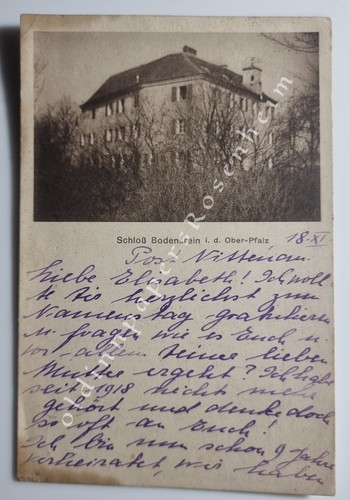 Schloß Bodenstein i. d. Ober-Pfalz
18. XI
Post Nittenau.
Liebe Elisabeth! Ich woll-
te Dir herzlichst zum
Namenstag gratulieren
u. fragen wie es Euch u.
vor allem Deiner lieben
Mutter ergeht? Ich habe
seit 1918 nichts mehr
gehört und denke doch
so oft an Euch!
Ich bin nun schon 9 Jahre
verheiratet, wir haben
oldtimpapersRosenheim